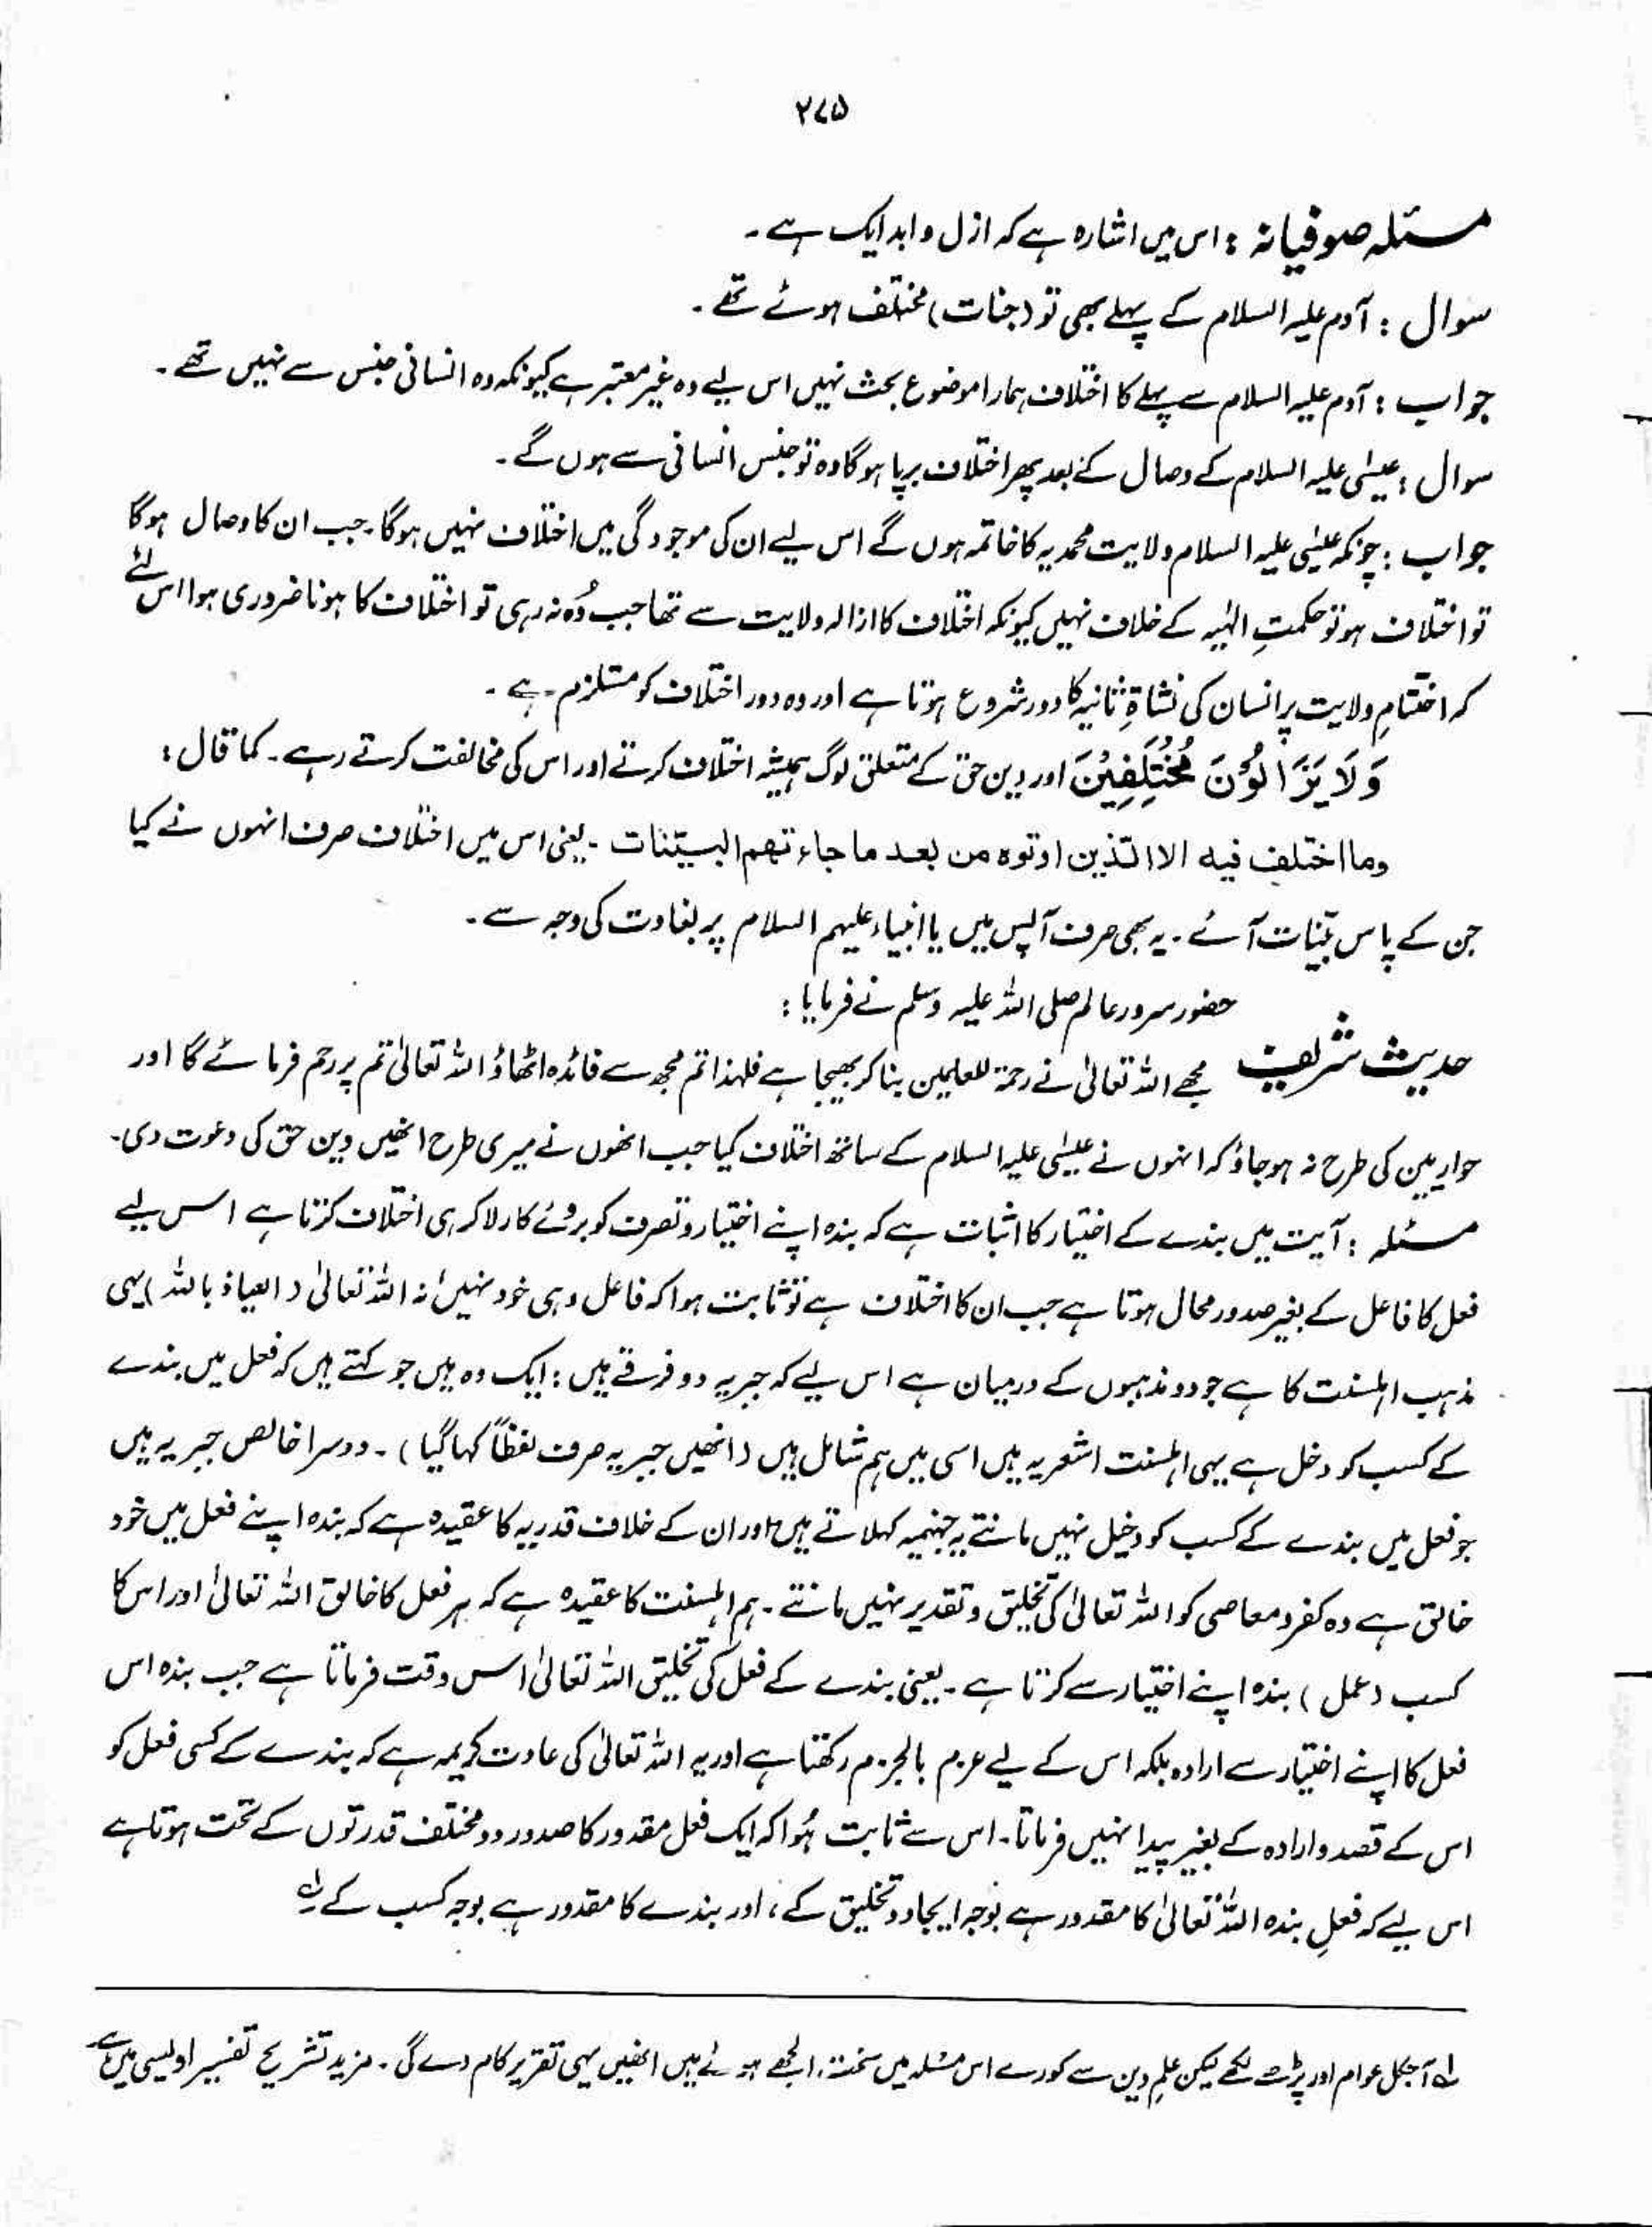 ۲۷۵
مسئلہ صوفیانہ : اس میں اشارہ ہے کہ ازل و ابد ایک ہے ۔
سوال : آدم علیہ السلام کے پہلے بھی تو (جنات) مختلف ہوئے تھے ۔
جواب : آدم علیہ السلام سے پہلے کا اختلاف ہمارا موضوع بحث نہیں اس لیے وہ غیر معتبر ہے کیونکہ وہ انسانی جنس سے نہیں تھے ۔
سوال : عیسٰی علیہ السلام کے وصال کے بعد پھر اختلاف برپا ہوگا وہ تو جنس انسانی سے ہوں گے ۔
جواب : چونکہ عیسٰی علیہ السلام ولایت محمدیہ کا خاتمہ ہوں گے اس لیے ان کی موجودگی میں اختلاف نہیں ہوگا ۔ جب ان کا وصال ہوگا
تو اختلاف ہو تو حکمتِ الٰہیہ کے خلاف نہیں کیونکہ اختلاف کا ازالہ ولایت سے تھا جب وُہ نہ رہی تو اختلاف کا ہونا ضروری ہوا اس لئے
کہ اختتامِ ولایت پر انسان کی نشاۃِ ثانیہ کا دور شروع ہوتا ہے اور وہ دور اختلاف کو مستلزم ہے ۔
وَلَا یَزَالُوْنَ مُخْتَلِفِیْنَ اور دین حق کے متعلق لوگ ہمیشہ اختلاف کرتے اور اس کی مخالفت کرتے رہے ۔ کما قال :
وما اختلف فیہ الا الّذین اوتوہ من بعد ما جاءتھم البیّنات ۔ یعنی اس میں اختلاف صرف انہوں نے کیا
جن کے پاس بیّنات آئے ۔ یہ بھی صرف آپس میں یا انبیاء علیہم السلام پر بغاوت کی وجہ سے ۔
حضور سرور عالم صلی اللہ علیہ وسلم نے فرمایا :
حدیث شریف مجھے اللہ تعالیٰ نے رحمۃ للعلمین بنا کر بھیجا ہے فلہذا تم مجھ سے فائدہ اٹھاؤ اللہ تعالیٰ تم پر رحم فرمائے گا اور
حواریین کی طرح نہ ہو جاؤ کہ انہوں نے عیسٰی علیہ السلام کے ساتھ اختلاف کیا جب انھوں نے میری طرح انھیں دین حق کی دعوت دی ۔
مسئلہ : آیت میں بندے کے اختیار کا اثبات ہے کہ بندہ اپنے اختیار و تصرف کو بروئے کار لا کر ہی اختلاف کرتا ہے اس لیے
فعل کا فاعل کے بغیر صدور محال ہوتا ہے جب ان کا اختلاف ہے تو ثابت ہوا کہ فاعل وہی خود نہیں نہ اللہ تعالیٰ (العیاذ باللہ) یہی
مذہب اہلسنت کا ہے جو دو مذہبوں کے درمیان ہے اس لیے کہ جبریہ دو فرقے ہیں : ایک وہ ہیں جو کہتے ہیں کہ فعل میں بندے
کے کسب کو دخل ہے یہی اہلسنت اشعریہ ہیں اسی میں ہم شامل ہیں (انھیں جبریہ صرف لفظاً کہا گیا) ۔ دوسرا خالص جبریہ ہیں
جو فعل میں بندے کے کسب کو دخیل نہیں مانتے یہ جہنمیہ کہلاتے ہیں اور ان کے خلاف قدریہ کا عقیدہ ہے کہ بندہ اپنے فعل میں خود
خالق ہے وہ کفر و معاصی کو اللہ تعالیٰ کی تخلیق و تقدیر نہیں مانتے ۔ ہم اہلسنت کا عقیدہ ہے کہ ہر فعل کا خالق اللہ تعالیٰ اور اس کا
کسب (عمل) بندہ اپنے اختیار سے کرتا ہے ۔ یعنی بندے کے فعل کی تخلیق اللہ تعالیٰ اس وقت فرماتا ہے جب بندہ اس
فعل کا اپنے اختیار سے ارادہ بلکہ اس کے لیے عزم بالجزم رکھتا ہے اور یہ اللہ تعالیٰ کی عادت کریمہ ہے کہ بندے کے کسی فعل کو
اس کے قصد و ارادہ کے بغیر پیدا نہیں فرماتا ۔ اس سے ثابت ہُوا کہ ایک فعل مقدور کا صدور دو مختلف قدرتوں کے تحت ہوتا ہے
اس لیے کہ فعلِ بندہ اللہ تعالیٰ کا مقدور ہے بوجہ ایجاد و تخلیق کے ، اور بندے کا مقدور ہے بوجہ کسب کے لہ
لہ آجکل عوام اور پڑھے لکھے لیکن علمِ دین سے کورے اس مسئلہ میں سخت الجھے ہوئے ہیں انھیں یہی تقریر کام دے گی ۔ مزید تشریح تفسیر اویسی میں ہے